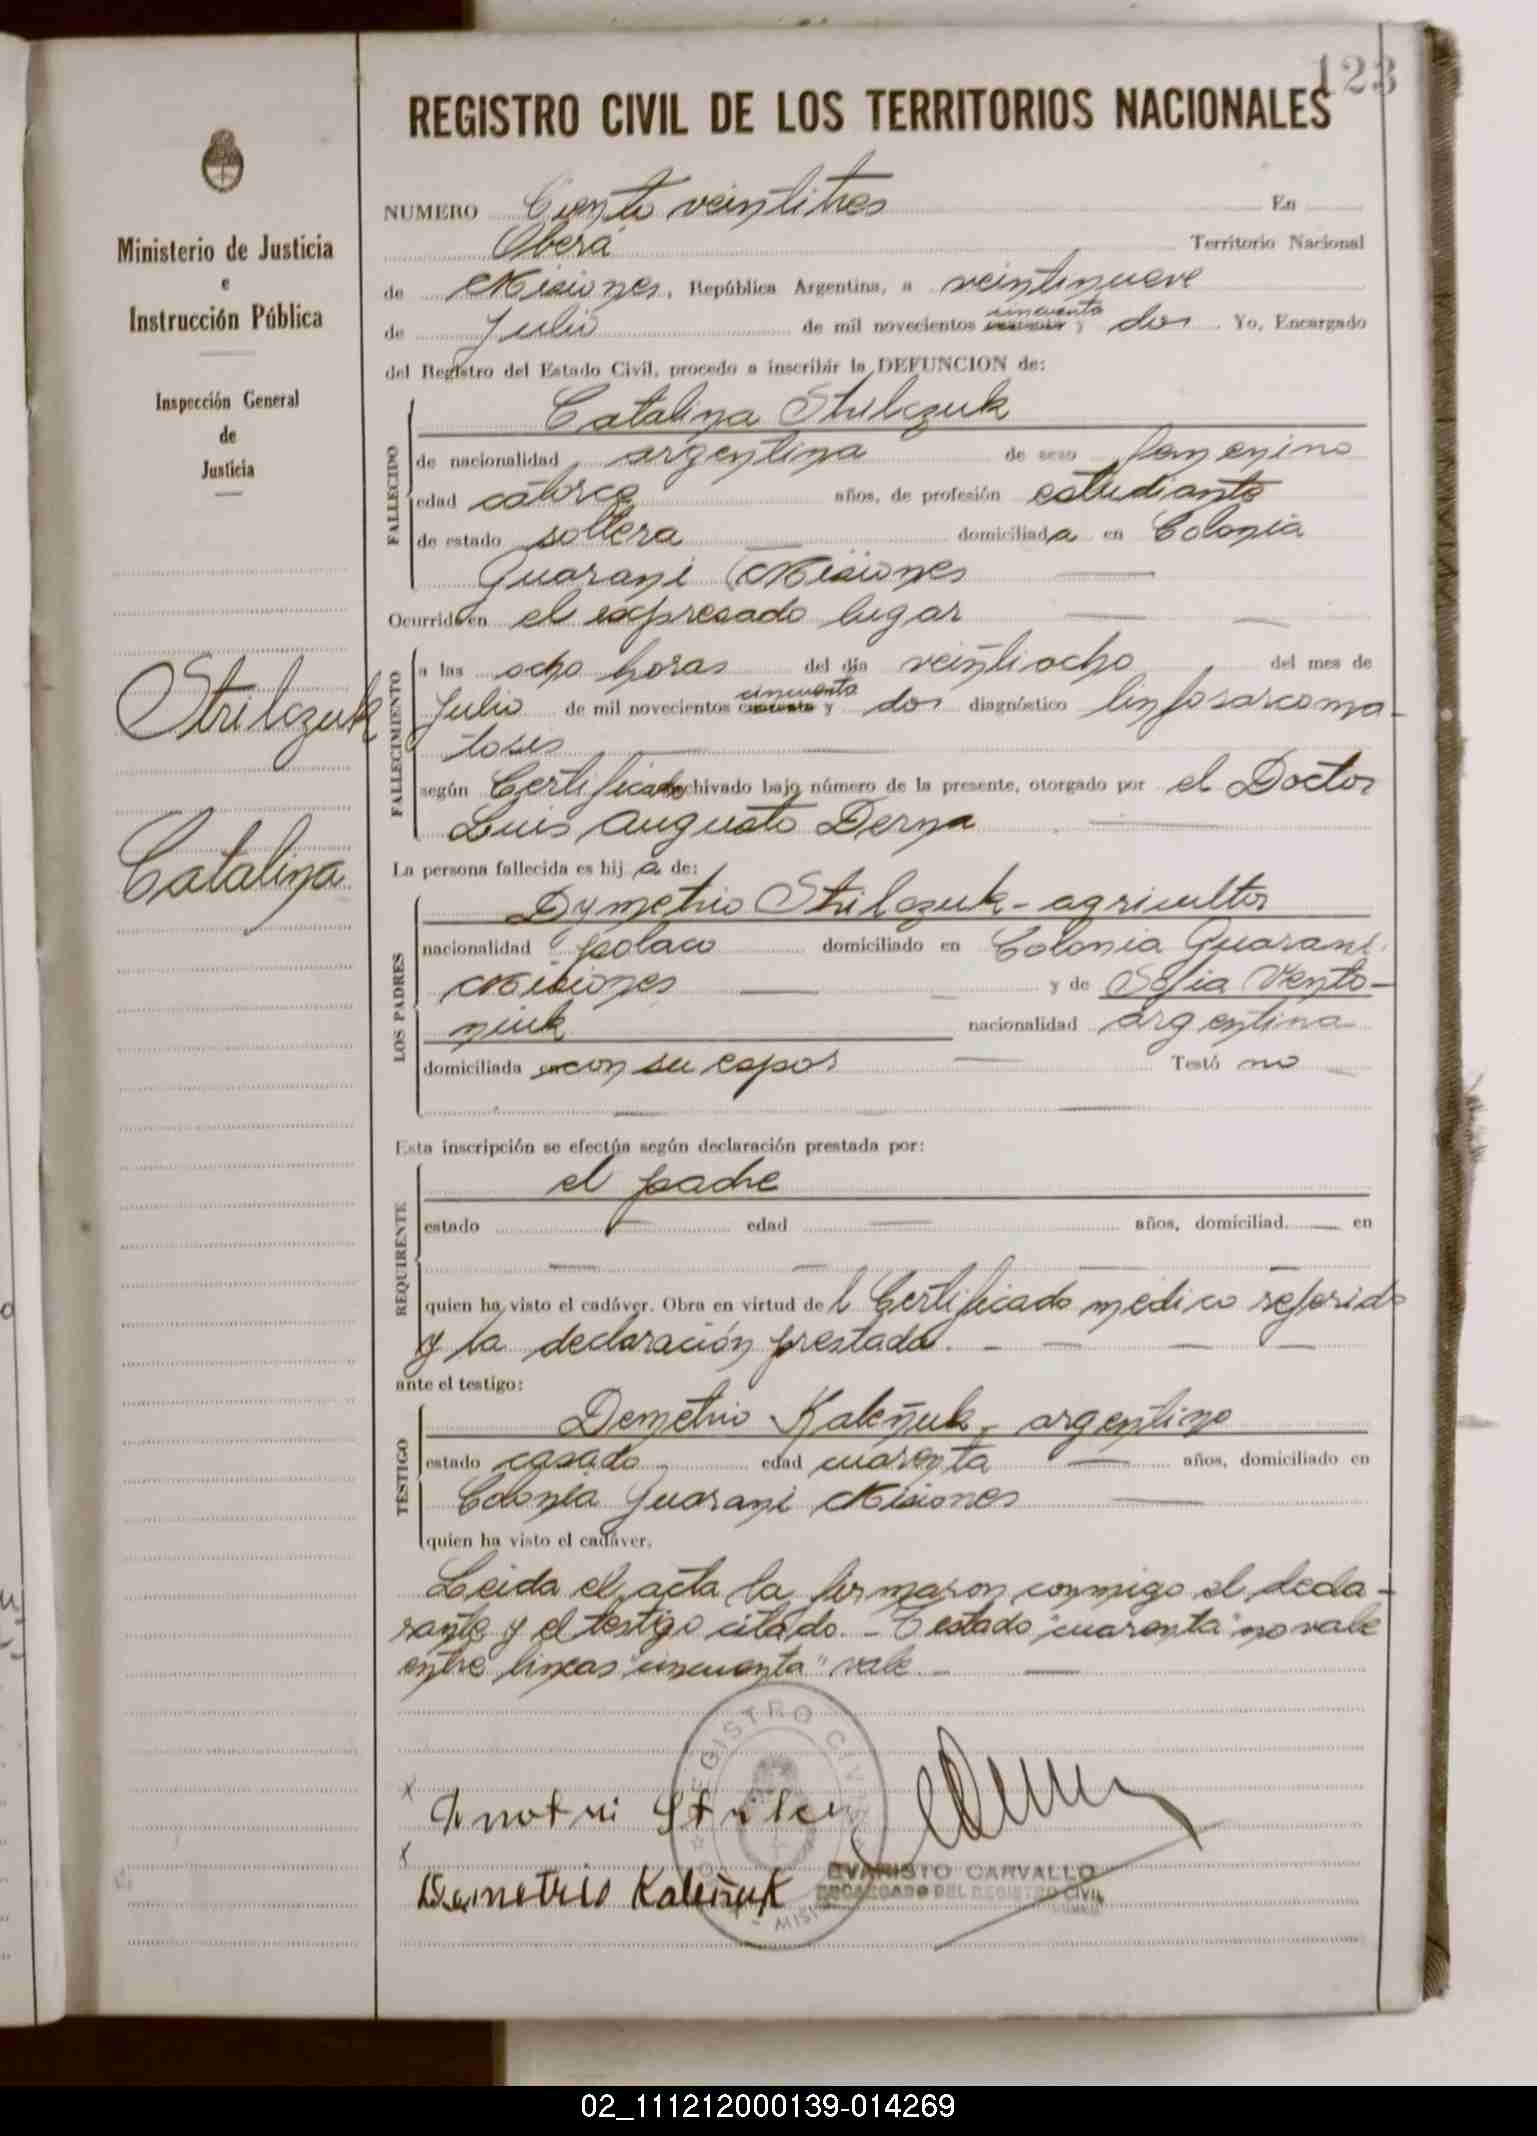 123
REGISTRO CIVIL DE LOS TERRITORIOS NACIONALES
Ministerio de Justicia
e
Instrucción Pública
Inspección General
de
Justicia
Strilczuk
Catalina
NUMERO Ciento veintitres En
Oberá Territorio Nacional
de Misiones, República Argentina, a veintinueve
de Julio de mil novecientos cincuenta cuarenta y dos. Yo, Encargado
del Registro del Estado Civil, procedo a inscribir la DEFUNCION de:
FALLECIDO
Catalina Strilczuk
de nacionalidad argentina de sexo femenino
edad catorce años, de profesión estudiante
de estado soltera domiciliada en Colonia
Guarani (Misiones
Ocurrido en el expresado lugar
FALLECIMIENTO
a las ocho horas del día veintiocho del mes de
Julio de mil novecientos cincuenta cuarenta y dos diagnóstico linfosarcoma-
tosis
según Certificado archivado bajo número de la presente, otorgado por el Doctor
Luis Augusto Derna
La persona fallecida es hija de:
LOS PADRES
Dymetrio Strilczuk - agricultor
nacionalidad polaco domiciliado en Colonia Guarani
Misiones y de Sofia Vento-
niuk nacionalidad argentina
domiciliada en con su espos Testó no
Esta inscripción se efectúa según declaración prestada por:
REQUIRENTE
el padre
estado edad años, domiciliad en
quien ha visto el cadáver. Obra en virtud del Certificado medico referido
y la declaración prestada.
ante el testigo:
TESTIGO
Demetrio Kaleñuk - argentino
estado casado edad cuarenta años, domiciliado en
Colonia Guarani Misiones
quien ha visto el cadáver.
Leida el acta la firmaron conmigo el decla-
rante y el testigo citado. - Testado "cuarenta" no vale
entre lineas "cincuenta" vale. -
REGISTRO CIVIL
Demetrio Kaleñuk
EVARISTO CARVALLO
ENCARGADO DEL REGISTRO CIVIL
02_111212000139-014269